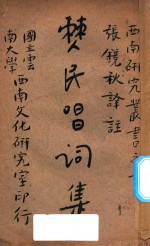 西南研究叢書之
張鏡秋譯註
僰民唱詞集
國立雲南大學西南文化研究室印行